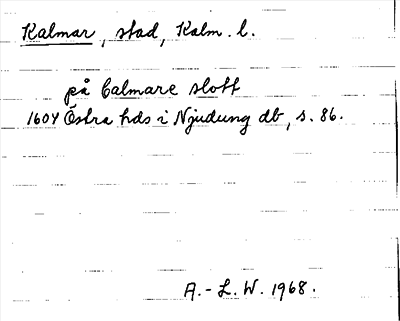 Kalmar, stad, Kalm. l.
på Calmare slott
1604 Östra hds i Njudung db, s. 86.
A.-L. W. 1968.